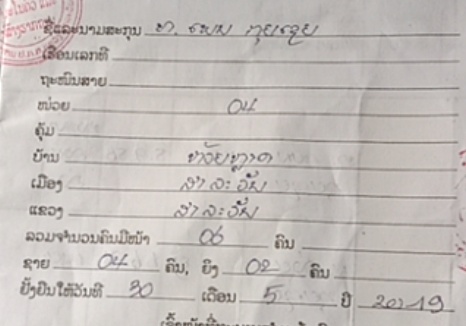 ຊື່ແລະນາມສະກຸນ ທ.
ເຮືອນເລກທີ
ຖະໜົນສາຍ
ໜ່ວຍ 04
ຄຸ້ມ
ບ້ານ ຫ້ວຍຫຼາດ
ເມືອງ ສາລະວັນ
ແຂວງ ສາລະວັນ
ລວມຈຳນວນຄົນມີໜ້າ 06 ຄົນ
ຊາຍ 04 ຄົນ, ຍິງ 02 ຄົນ
ຢັ້ງຢືນໃຫ້ວັນທີ 30 ເດືອນ 5 ປີ 2019